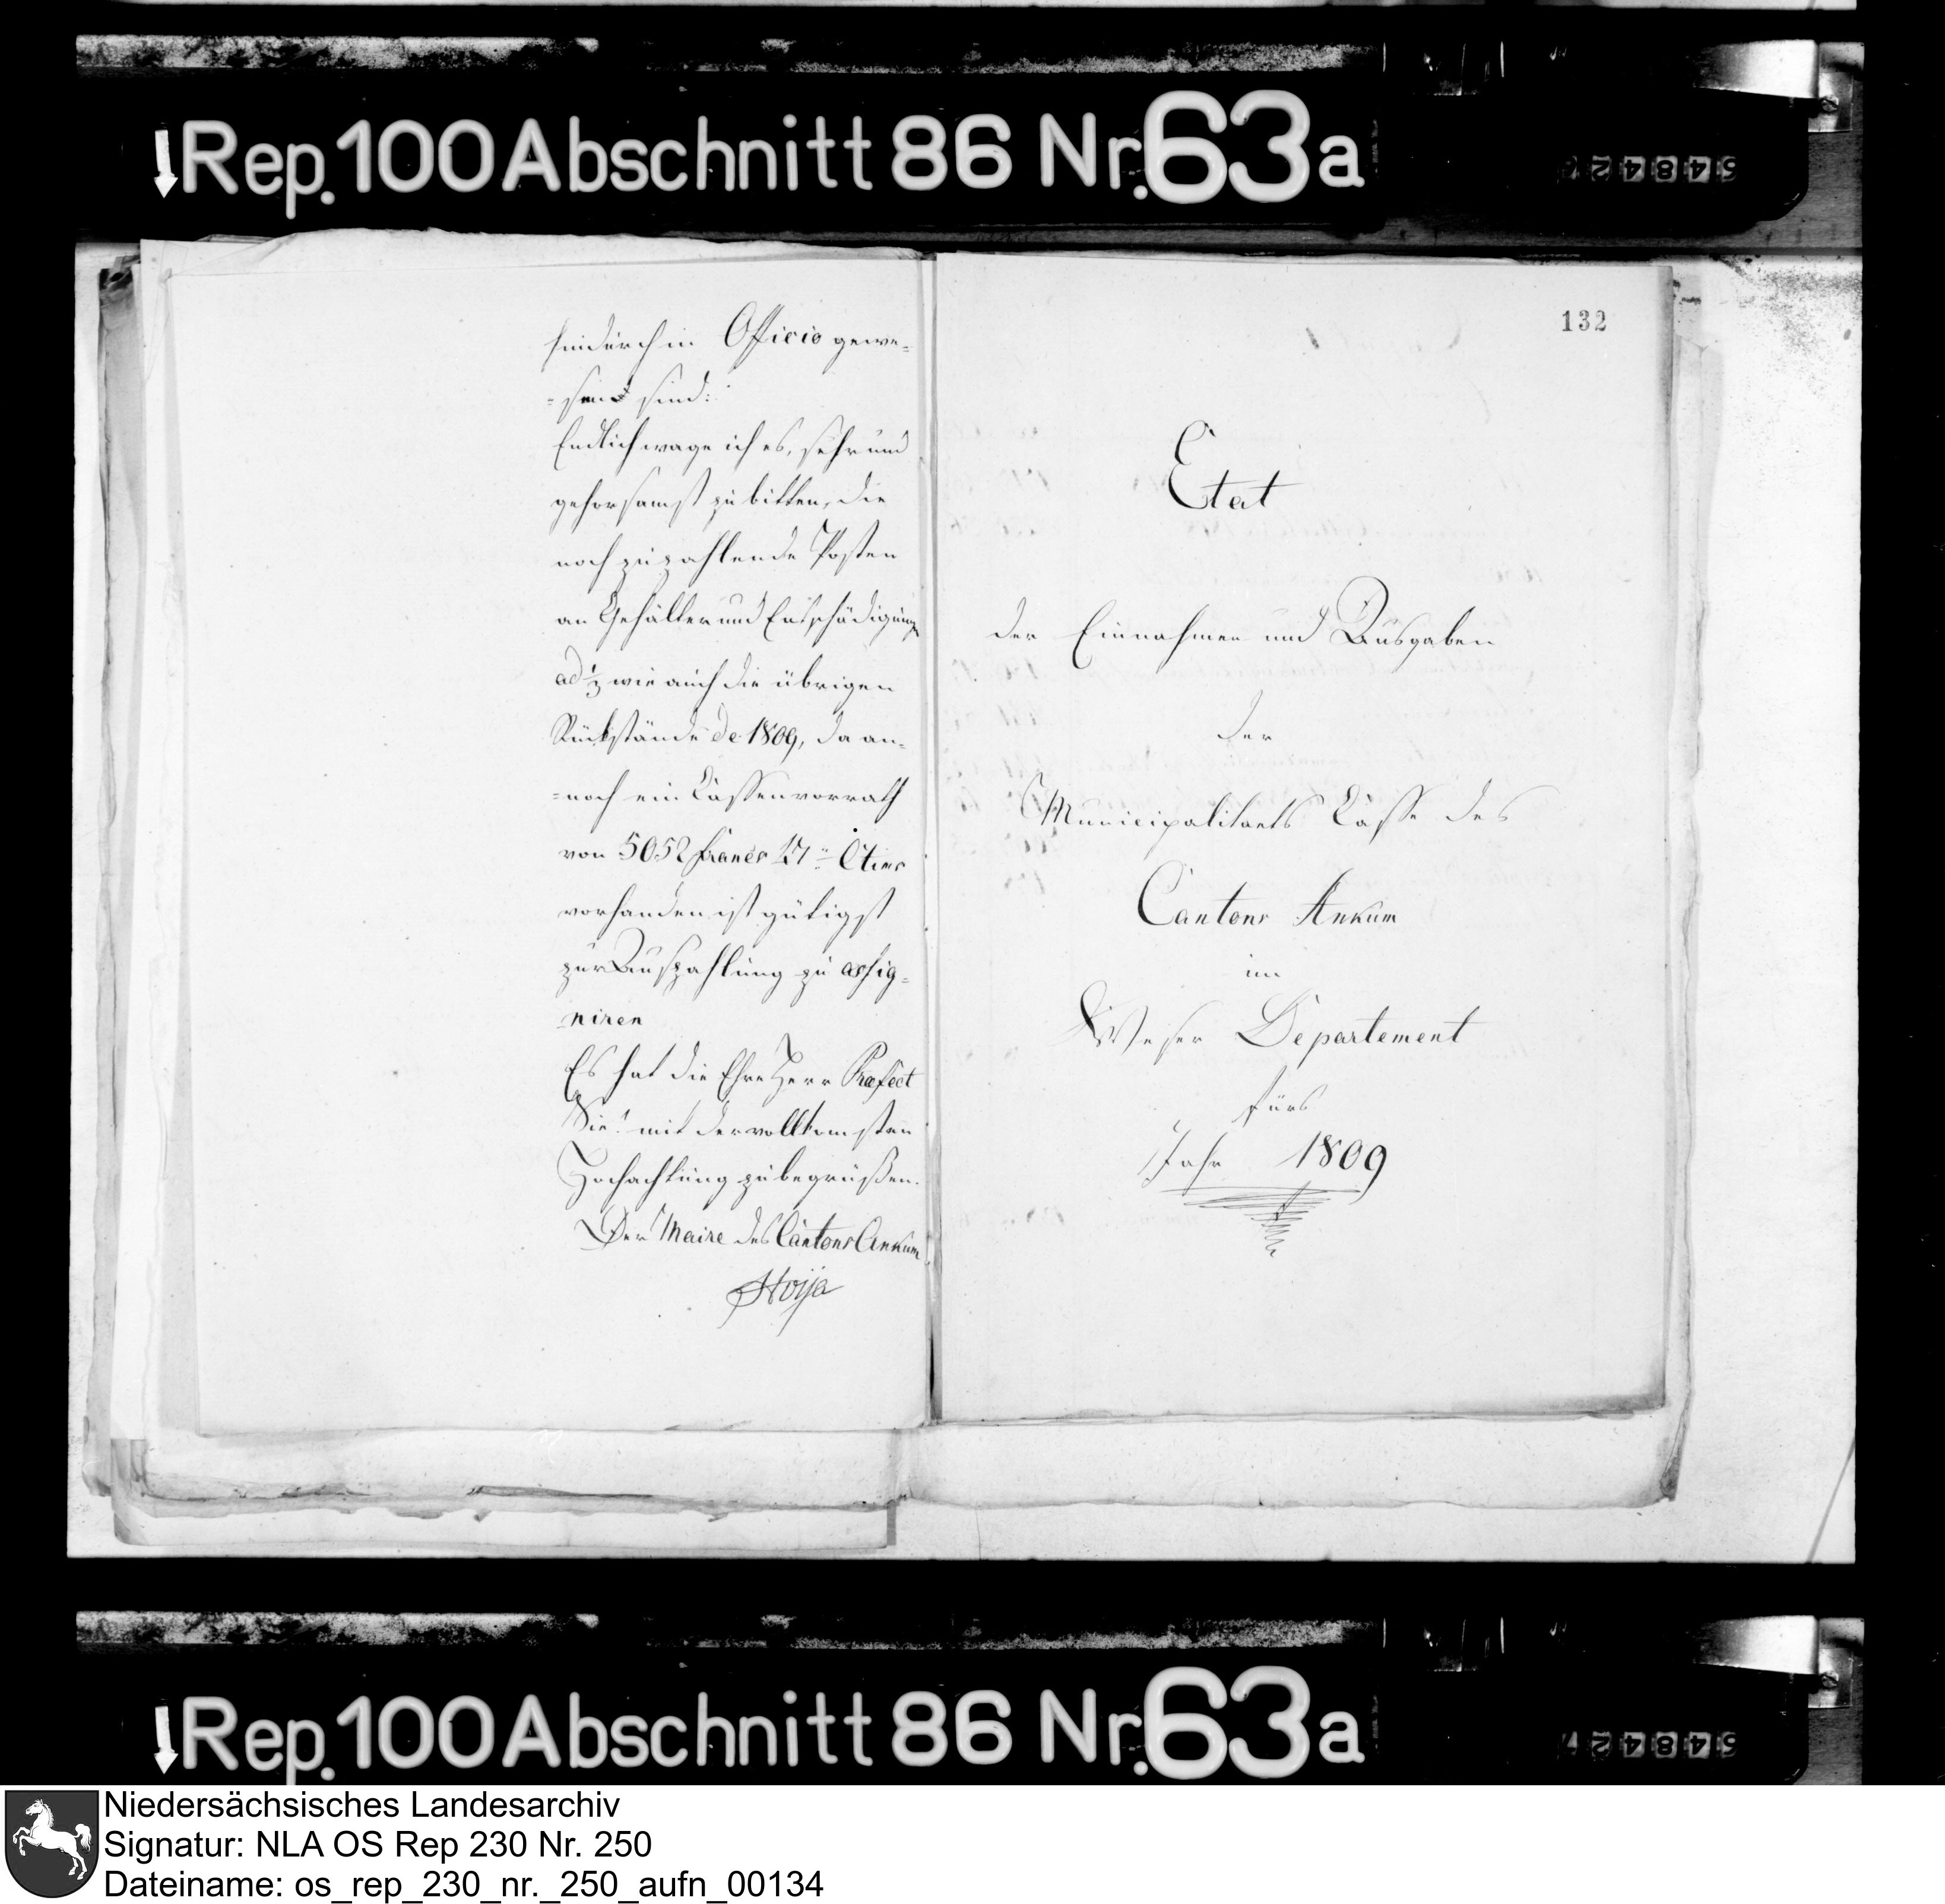 Rep. 100 Abschnitt 86 Nr. 63a
548427
hindurch in Officio gewe=
=sen sind:
Endlich wage ich es, sehr und
gehorsamst zu bitten, die
noch zu zahlende Posten
an Gehälter und Entschädigung
ad wie auch die übrigen
Rückstände de 1809, da an=
=noch ein Cassenvorrath
von 5052 francs 17 Ctims
vorhanden ist gütigst
zur Auszahlung zu assig=
niren
Es hat die Ehre Herr Praefect
Sie! mit der vollkomsten
Hochachtung zu begrüßen.
Der Maire des Cantons Ankum
Hoija
132
Etat
der Einnahmen und Ausgaben
der
Municipalitaets Casse des
Cantons Ankum
im
Weser Departement
fürs
Jahr 1809
Rep. 100 Abschnitt 86 Nr. 63a
548427
Niedersächsisches Landesarchiv
Signatur: NLA OS Rep 230 Nr. 250
Dateiname: os_rep_230_nr._250_aufn_00134